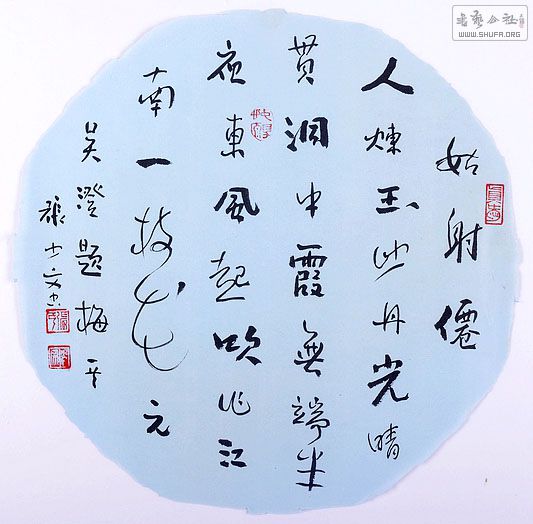 姑射僊
人煉玉沙丹光晴
貫洞中霞無端半
夜東風起吹作江
南一枝花 元
吴澄題梅
書藝公社
WWW.SHUFA.ORG